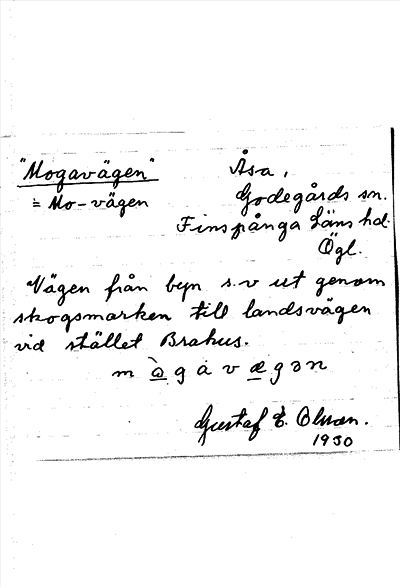 "Mogavägen"
= Mo-vägen
Åsa,
Godegårds sn.
Finspånga Läns hd.
Ögl.
Vägen från byn s.v ut genom
skogsmarken till landsvägen
vid stället Brahus.
m ò̲ g a v æ̲ g ə n
Gustaf E. Olsson.
1930